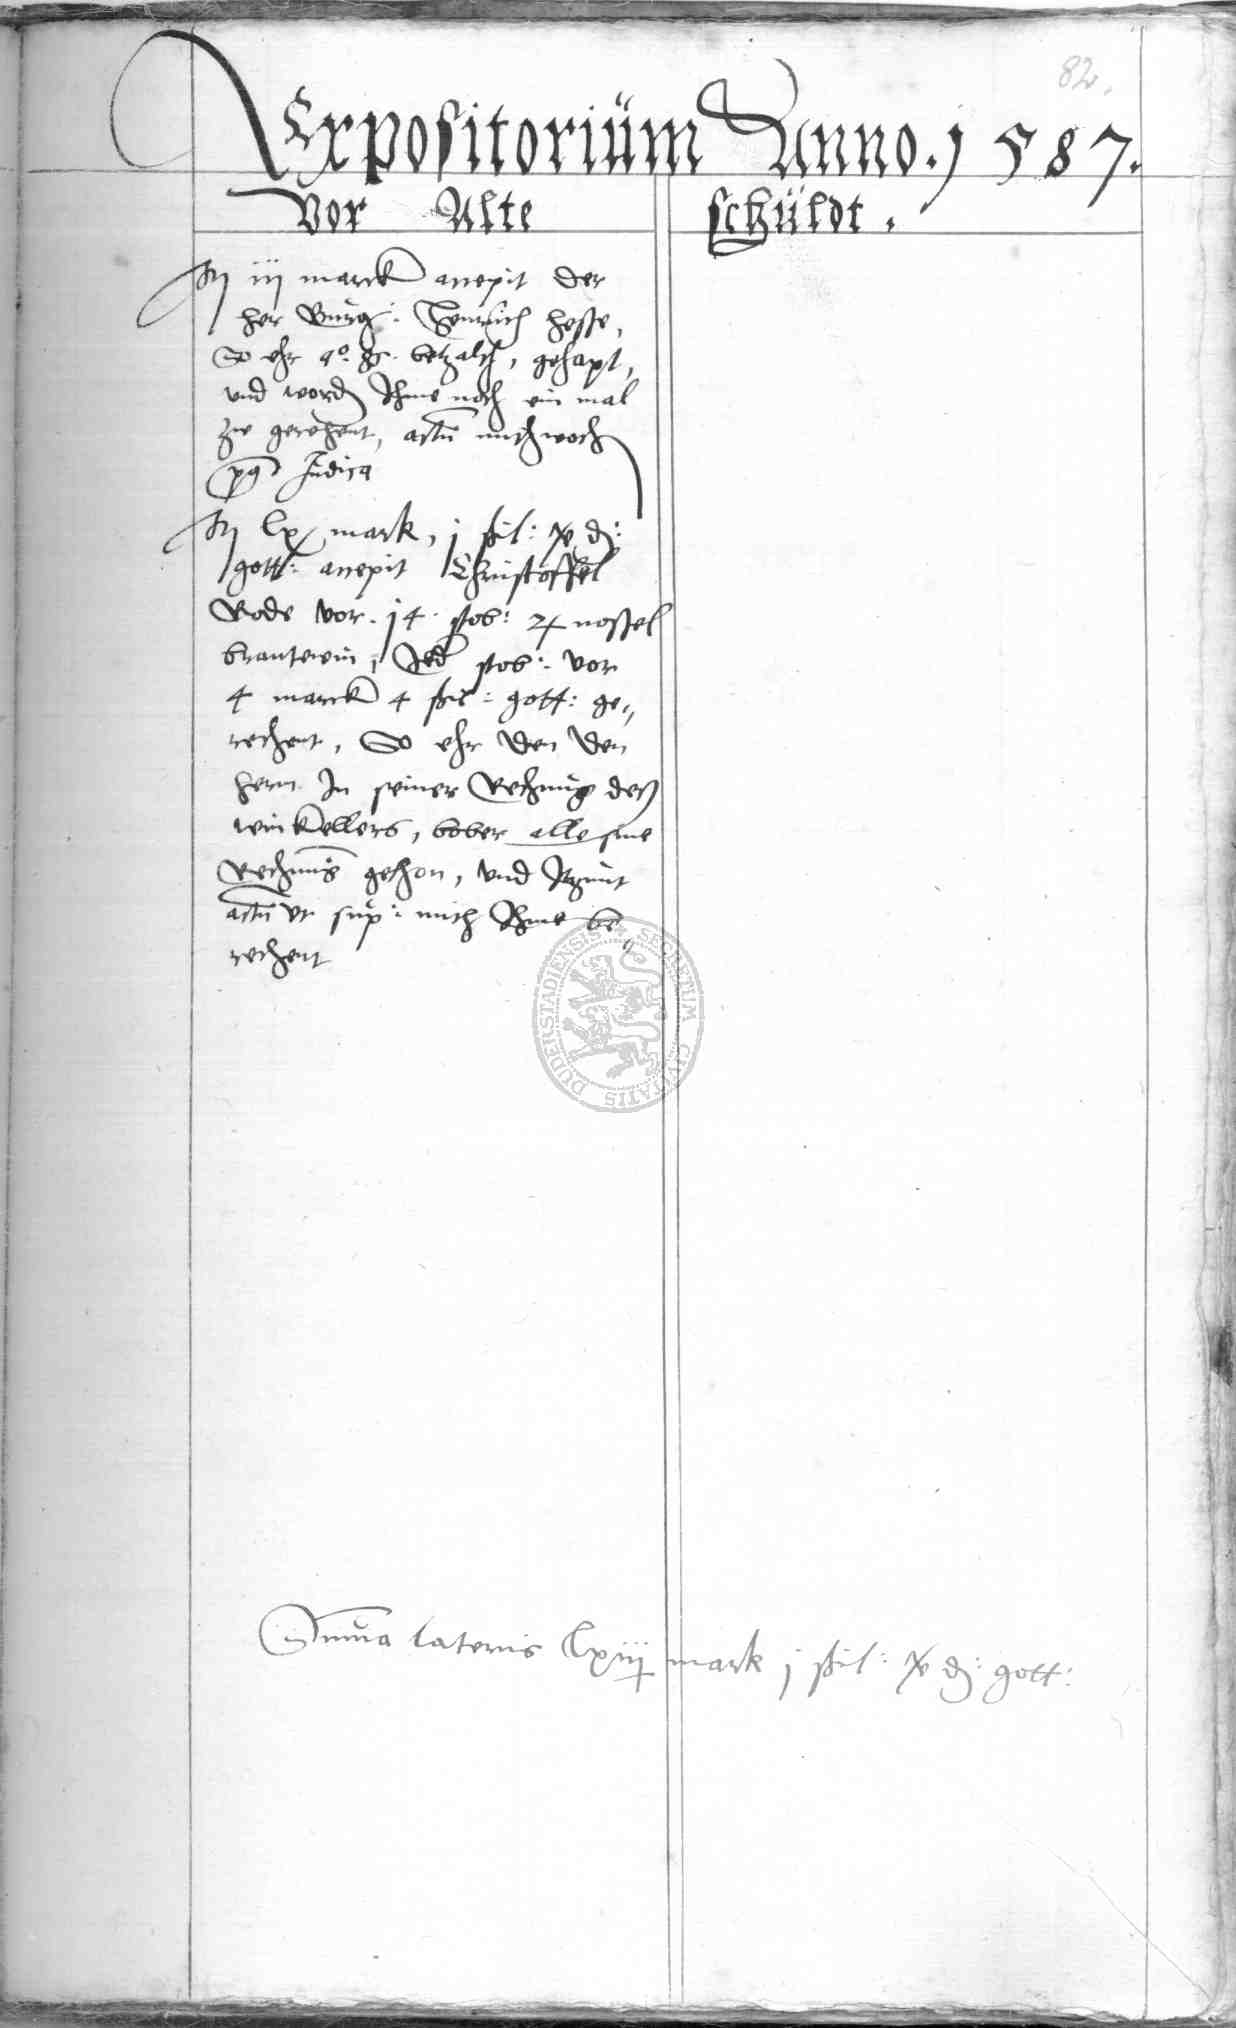 82.
Expositorium Anno. 1587.
Vor Alte schüldt.
iij marck accepit der
her Burg: Henrich Hesse,
So ehr betzalth, gehapt,
und word Ihme noch ein mal
zw gerechent, actū mithwoch
pᵒ Judica
lx mark, j ßil: x d:
gott: accepit Christoffel
Rode vor. 14. stob: nossel
brantewin, Jed stob: vor
4 marck 4 ßil: gott: ge,,
rechent, So ehr den den
hern In seiner Rechnug des
winkellers, bober alle sine
Rechnūg gethon, und Itzunt
actū ut sup: mith Ihme be,,
rechent
DUDERSTADIENSIS SECRETUM CIVITATIS
Suma lateris lxiij mark j ßil: x d: gott: